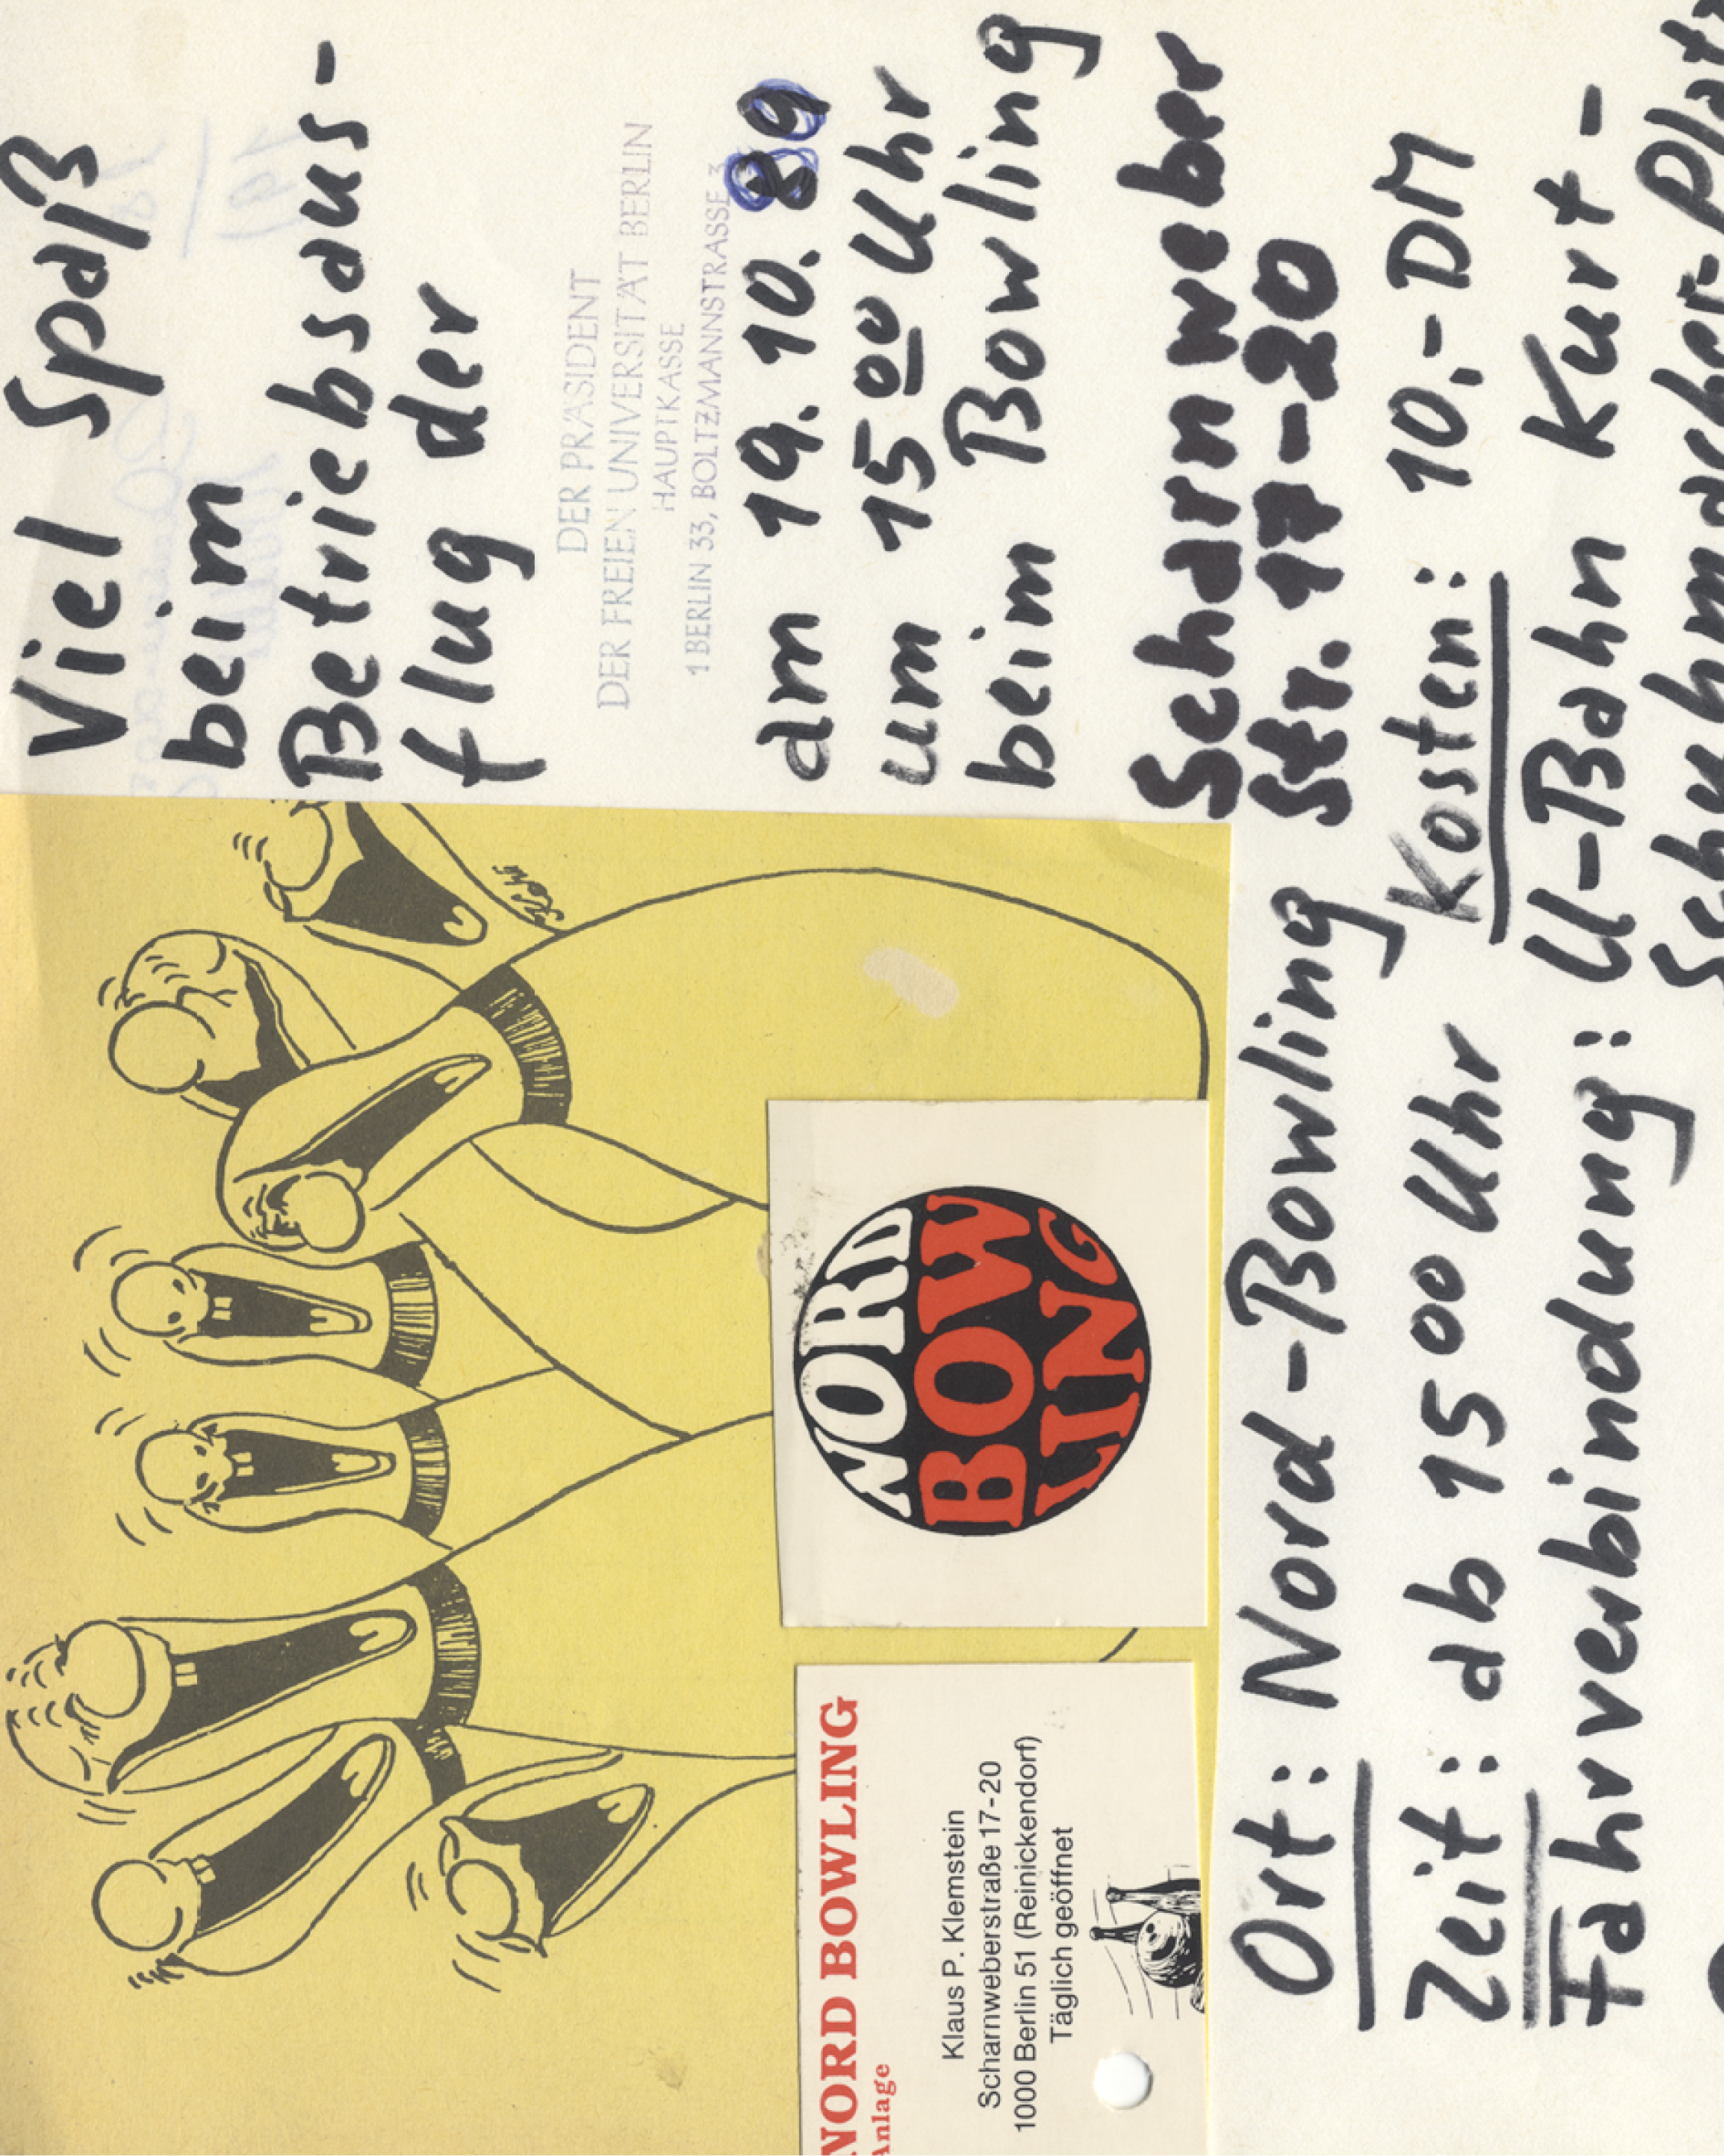 Viel Spaß
beim
Betriebsaus-
flug der
DER PRÄSIDENT
DER FREIEN UNIVERSITÄT BERLIN
HAUPTKASSE
1 BERLIN 33, BOLTZMANNSTRASSE 3
am 19. 10. 89
um 15 00 Uhr
beim Bowling
Scharnweber
Str. 17-20
NORD
BOW
LING
NORD BOWLING
Anlage
Klaus P. Klemstein
Scharnweberstraße 17-20
1000 Berlin 51 (Reinickendorf)
Täglich geöffnet
Ort: Nord-Bowling
Zeit: ab 15 00 Uhr Kosten: 10,- DM
Fahrverbindung: U-Bahn Kurt-
Schuhmacher-Platz